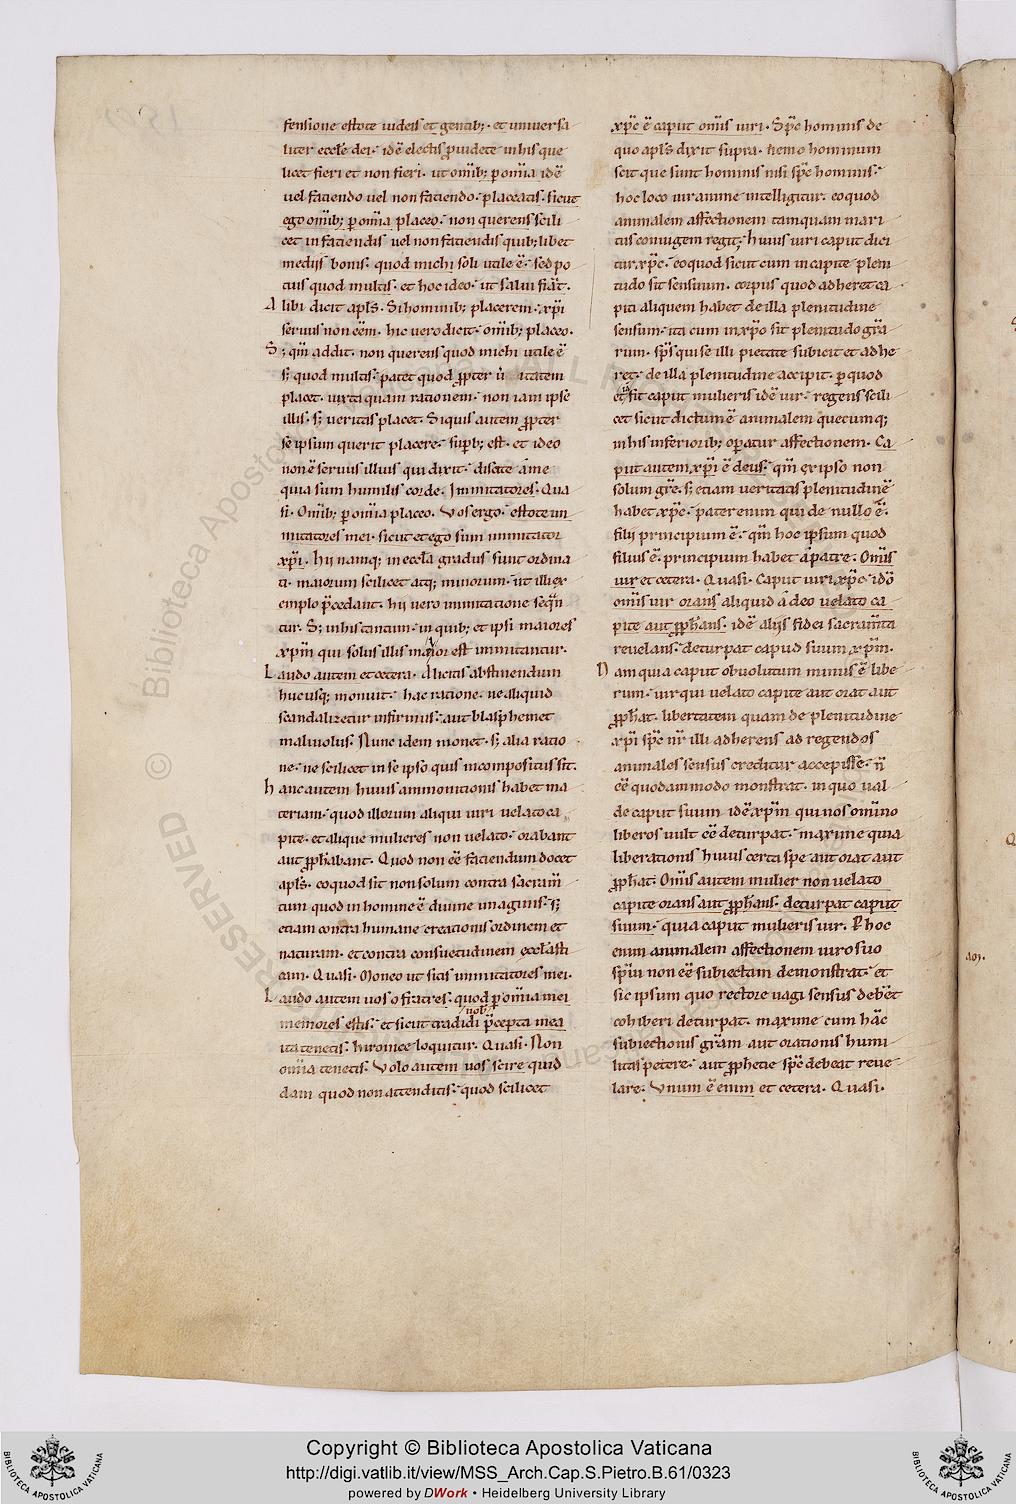 fensione estote iudeis et gentib; et uniuersa
liter eccłe dei. idē electis ꝓuidete in his que
licet fieri et non fieri. ut omīb; p̱ om̄ia idē
uel faciendo uel non faciendo. placeatis. sicut
ego omīb; p̱ om̄ia placeo. non querens scili
cet in faciendis uel non faciendis quib;libet
medijs bonis. quod michi soli utile ē. sed po
tius quod multis. et hoc ideo. ut salui fiāt.
Alibi dicit apłs. Si hominib; placerem. xp̄i
seruus non eēm. hic uero dicit. omīb; placeo.
S; qm̄ addit. non querens quod michi utile ē
s; quod multis. patet quod ꝓpter u itatem
placet. iuxta quam rationem. non iam ipse
illis. s; ueritas placet. Siquis autem ꝓpter
se ipsum querit placere. supb; est. et ideo
non ē seruus illius qui dixit. discite a me
quia sum humilis corde. Immitatores. Qua
si. Omīb; p̱ om̄ia placeo. Vos ergo. estote im
mitatores mei. sicut et ego sum immitator
xp̄i. hii namq; in eccła gradus sunt ordina
ti. maiorum scilicet atq; minorum. ut illi ex
emplo p̄cedant. hii uero immitatione seqn̄
tur. S; in his tantum. in quib; et ipsi maiores
xp̄m qui solus illis maior est immitantur.
Laudo autem et cetera. A licitis abstinendum
hucusq; monuit. hac ratione. ne aliquid
scandalizetur infirmus. aut blasphemet
maliuolus. Nunc idem monet. s; alia ratio
ne. ne scilicet in se ipso quis incompositus sit.
hanc autem huius ammonitionis habet ma
teriam. quod illorum aliqui uiri uelato ca
pite. et alique mulieres non uelato. orabant
aut ꝓphabant. Quod non eē faciendum docet
apłs. eo quod sit non solum contra sacram̄
tum quod in homine ē diuine imaginis. s;
etiam contra humane creationis ordinem et
naturam. et contra consuetudinem ecclasti
cam. Quasi. Moneo ut sitis immitatores mei.
Laudo autem uos o fratres. quod p̱ om̄ia mei
memores estis. et sicut tradidi uob p̄cepta mea
ita tenetis. hironice loquitur. Quasi. Non
om̄ia tenetis. Volo autem uos scire quid
dam quod non attenditis. quod scilicet
xp̄c ē caput om̄is uiri. Sp̄c hominis de
quo apłs dixit supra. nemo hominum
scit que sunt hominis nisi sp̄c hominis.
hoc loco uir anime intelligitur. eo quod
animalem affectionem tamquam mari
tus coniugem regit. huius uiri caput dici
tur xp̄c. eo quod sicut cum in capite pleni
tudo sit sensuum. corpus quod adheret ca
piti aliquem habet de illa plenitudine
sensum. ita cum in xp̄o sit plenitudo gra
rum. sps̄ qui se illi pietate subicit et adhe
ret. de illa plenitudine accipit. p̱ quod
etiā fit caput mulieris idē uir. regens scili
cet sicut dictum ē animalem quecumq;
in his inferiorib; op̱atur affectionem. Ca
put autem xp̄i ē deus. qm̄ ex ipso non
solum grē. s; etiam ueritatis plenitudinē
habet xp̄c. pater enim qui de nullo ē.
filij principium ē. qm̄ hoc ipsum quod
filius ē. principium habet a patre. Om̄is
uir et cetera. Quasi. Caput uiri xp̄c. idō
om̄is uir orans aliquid a deo uelato ca
pite aut ꝓphans. idē alijs fidei sacram̄ta
reuelans. deturpat capud suum xp̄m.
Nam quia caput obuolutum minus ē libe
rum. uir qui uelato capite aut orat aut
ꝓphat. libertatem quam de plenitudine
xp̄i sp̄c nr̄ illi adherens ad regendos
animales sensus creditur accepisse. n̄
eē quodammodo monstrat. in quo ual
de caput suum idē xp̄m qui nos om̄ino
liberos uult eē deturpat. maxime quia
liberationis huius certa spe aut orat aut
ꝓphat. Om̄is autem mulier non uelato
capite orans aut ꝓphans. deturpat caput
suum. quia caput mulieris uir. P̱ hoc
enim animalem affectionem uiro suo
sp̄ui non eē subiectam demonstrat. et
sic ipsum quo rectore uagi sensus debēt
cohiberi deturpat. maxime cum hāc
subiectionis grām aut orationis humi
litas petere. aut ꝓphetie sp̄c debeat reue
lare. Vnum ē enim et cetera. Quasi.
Copyright © Biblioteca Apostolica Vaticana
http://digi.vatlib.it/view/MSS_Arch.Cap.S.Pietro.B.61/0323
powered by DWork • Heidelberg University Library
BIBLIOTECA APOSTOLICA VATICANA
BIBLIOTECA APOSTOLICA VATICANA